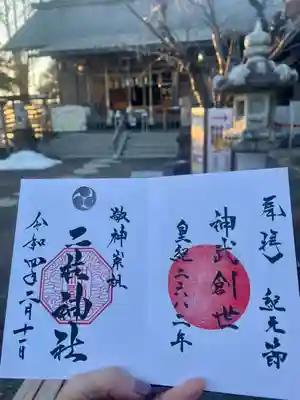 奉拝 紀元節
神武創世
皇紀二六八二年
敬神崇祖
二柱神社
令和四年二月十一日